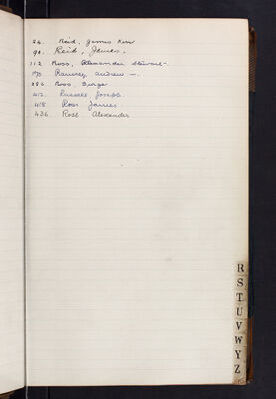 84. Reid, James Kerr
90. Reid, James.
112 Ross, Alexander Stewart.
Ramsay, Andrew —.
286 Ross, George
412. Russell, Joseph.
418 Ross James.
436. Rose Alexander
R
S
T
U
V
W
Y
Z